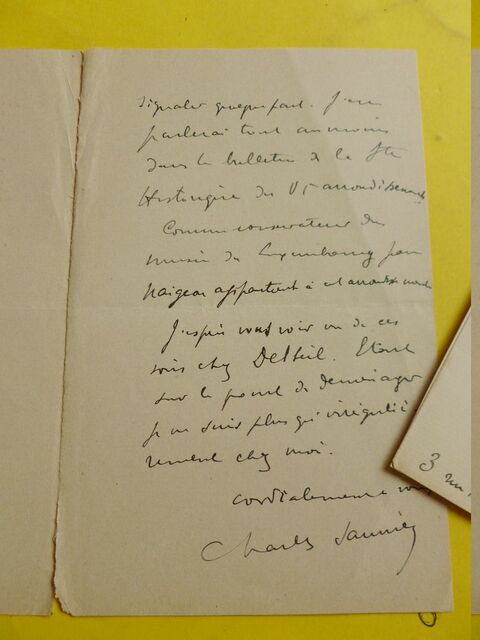 signaler quelque part. J'en
parlerai tout au moins
dans le bulletin de la Sté
Historique du VI arrondissement
Comme conservateur du
musée du Luxembourg
Naigeon appartient à cet arrondissement
J'espère vous voir un de ces
soirs chez Delteil. Etant
sur le point de déménager
je ne suis plus qu'irréguliè
rement chez moi.
cordialement à vous
Charles Saunier
3 rue